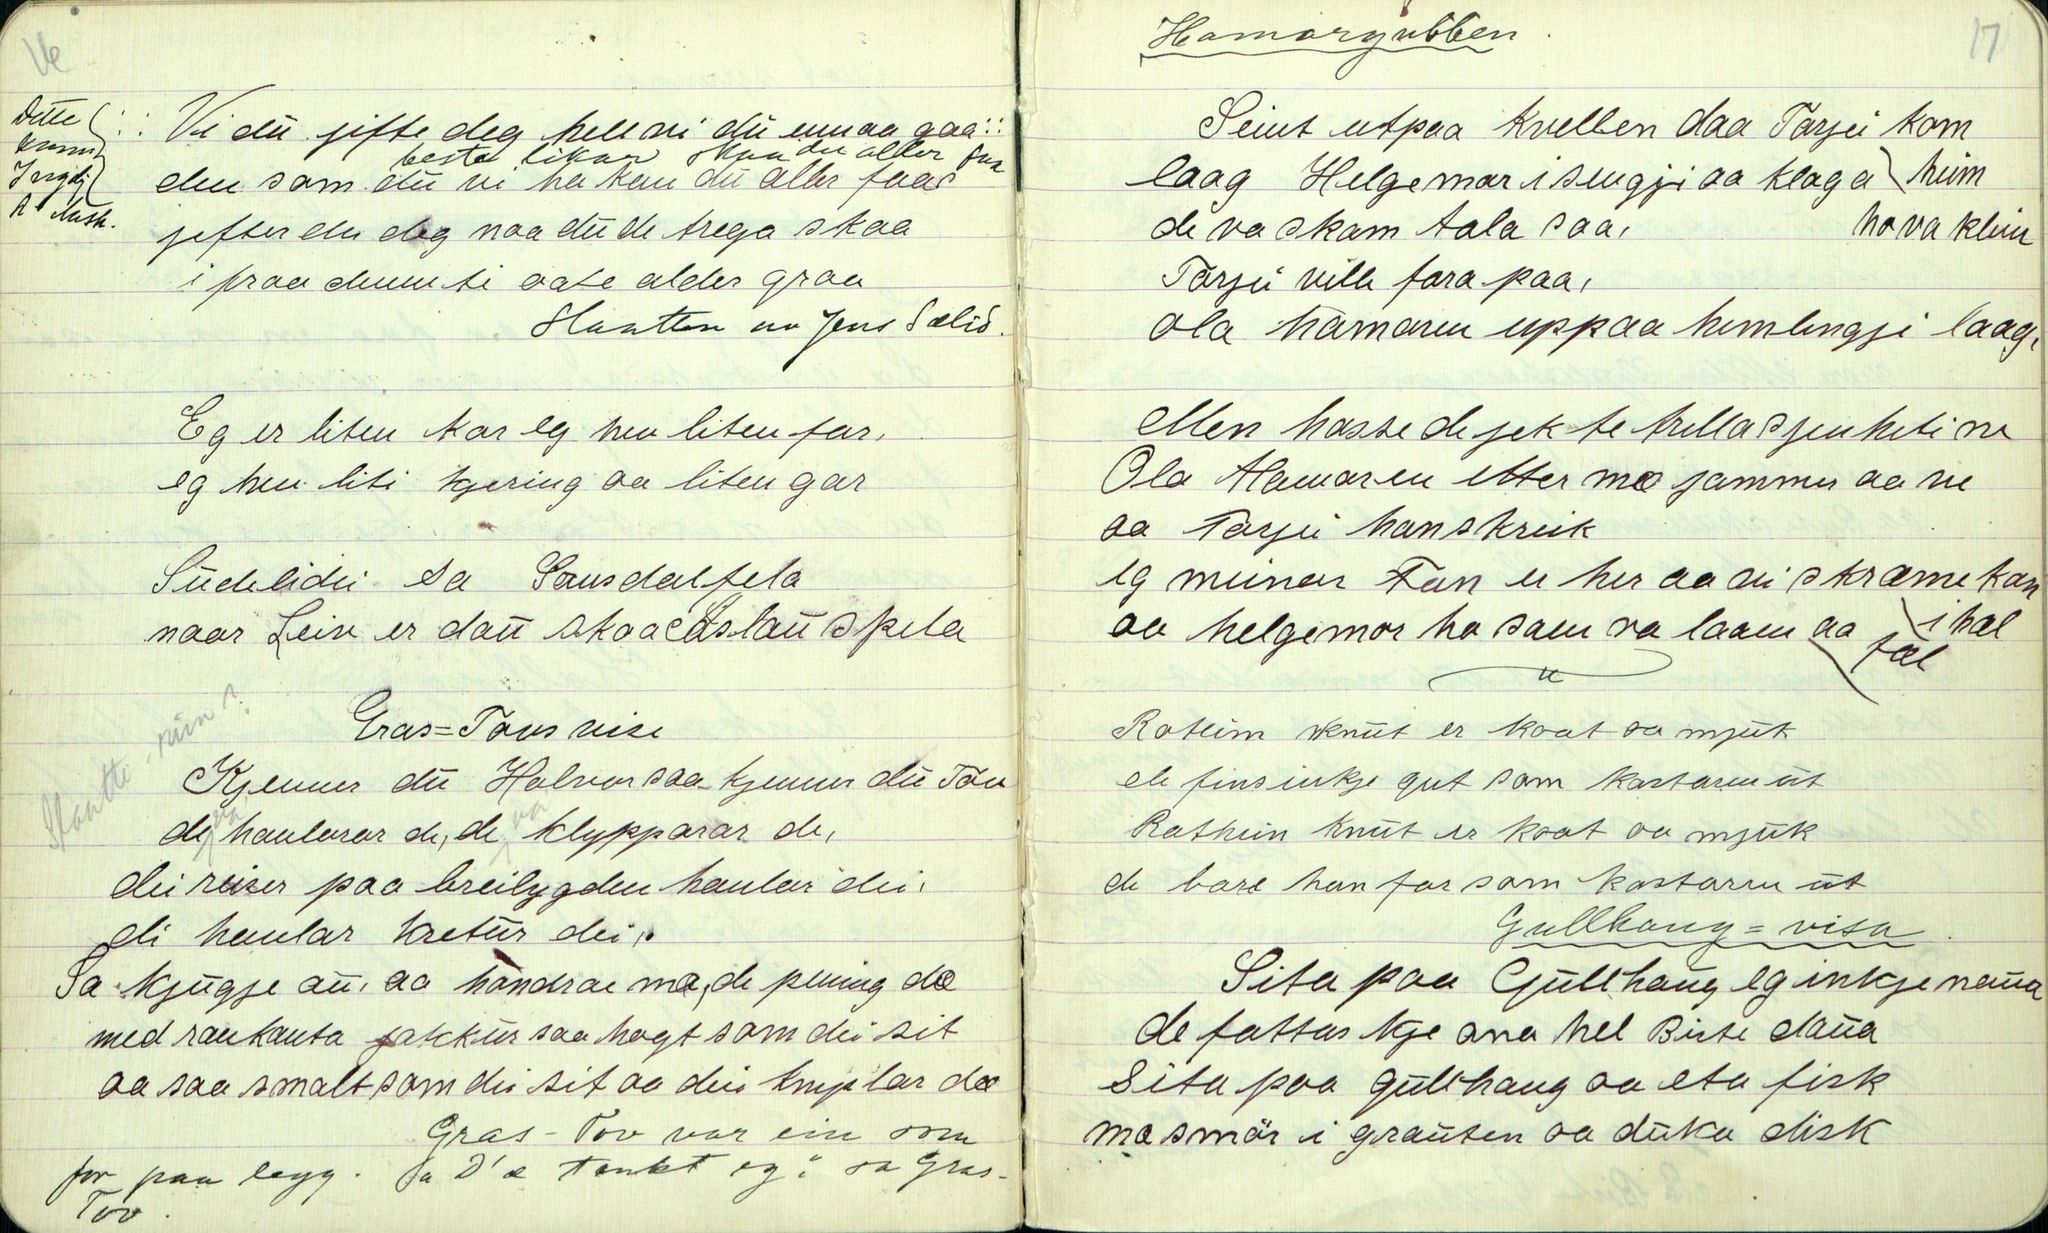 16
Dette
kunne
Ingebj
A. Aasl.
:: Vi du jifte deg hell vi du ennaa gaa ::
beste likar skuu du alder faa
den som du vi ha kan du aller faa
jefter du deg naa du de trega skaa
i fraa denni ti aate alder graa
Slaatten av Jens Sælid.
Eg er liten kar eg hev liten far,
eg hev liti kjering aa liten gar
Sudelidei sa Sousdalfela
naar Leiv er dau skaa Aaslau spela
Gras=Tovs vise
Kjenner du Halvor saa kjenner du Tov
de hanlarar de, de klypparar de,
dei reiser paa breibygden hanlar dei,
di hanlar kretur dei,
Sa kjugje au, aa handrae mæ, de pening dæ
med rankanta jakkur saa hogt som dei sit
aa saa smalt som dei sit aa dei kniplar dæ
Gras-Tov var ein som
for paa legg. Sa "D'æ tenkt eg" sa Gras-
Tov.
17
Hamargubben.
Seint utpaa kvellen daa Tarjei kom
laag Helgemor i sengji aa klaga heim
de va skam tala saa, ho va klein
Tarjei ville fara paa,
Ola hamaren uppaa hemlengji laag,
Men hasste de jek te trilla sjen heti ne
Ola Hamaren etter mæ jammer aa ve
aa Tarjei han skreik
eg meiner Fan er her aa ei skræme kan
aa helgemor ho saen va laaen aa i hæl
fæl
Roteim Knut er kaat aa mjuk
de fins inkje gut som kastaren ut
Rotheim Knut er kaat aa mjuk
de bare han far som kastaren ut
Gullhaug=visa.
Sita paa Gullhaug eg inkje naua
de fattas kje ana hel Birte daua
Sita paa gullhaug aa eta fisk
mæ smör i grauten aa duka disk